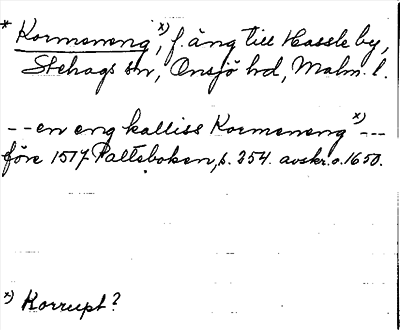 * Kormoneng x), f. äng till Hassle by,
Stehags sn, Onsjö hd, Malm. l.
-- en eng kalliss Kormoneng x) ---
före 1517 Palteboken, s. 254. avskr. o. 1650.
x) Korrupt?